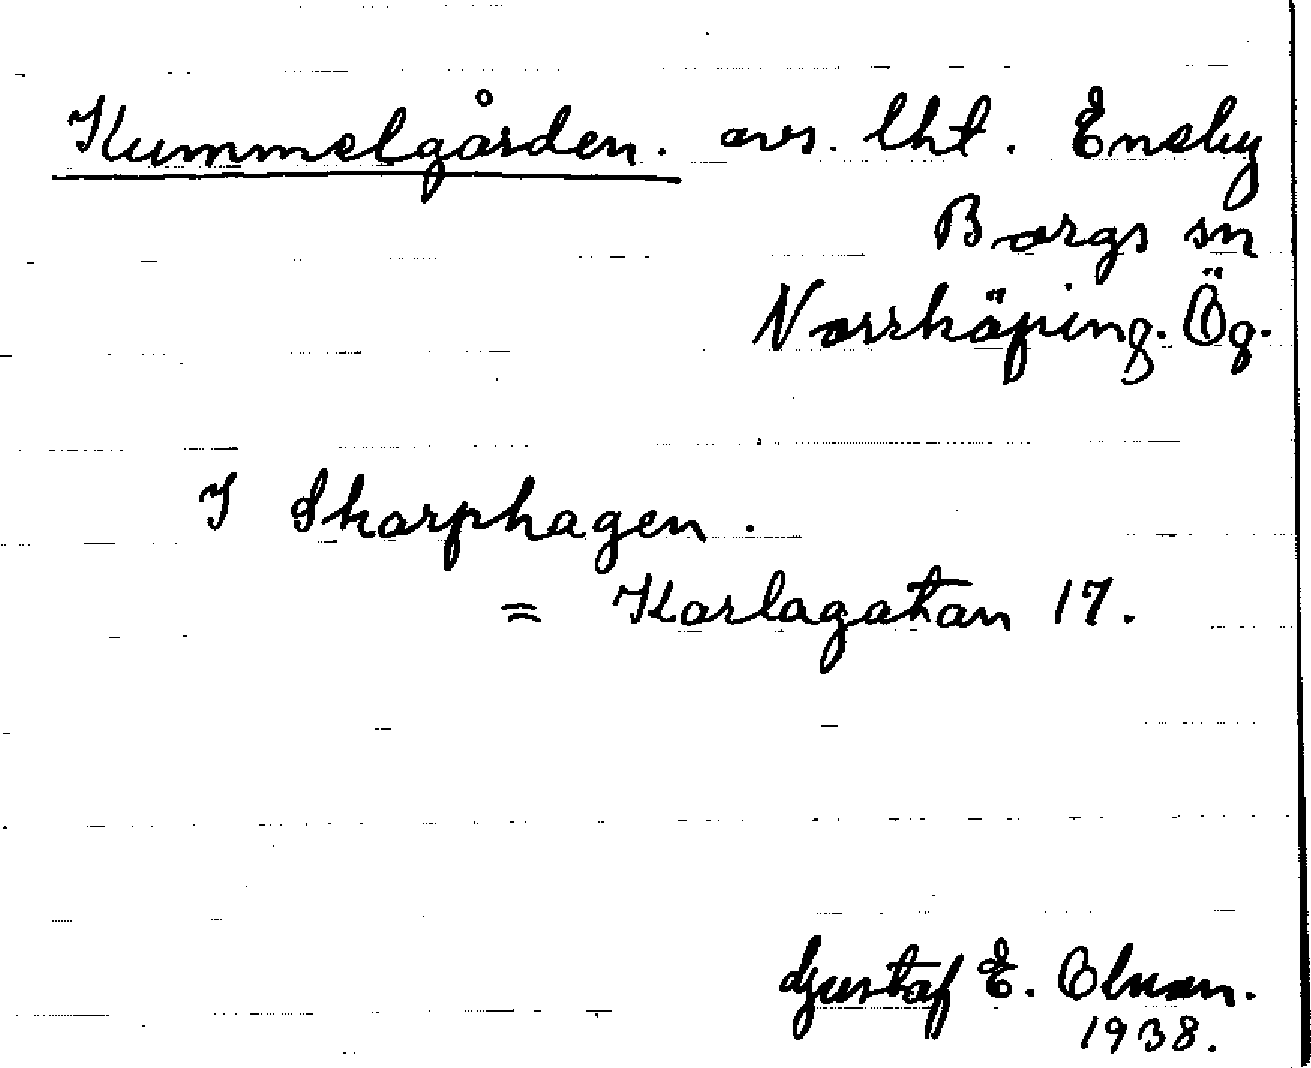 Kummelgården. avs. lht. Eneby
Borgs sn
Norrköping. Ög.
I Skarphagen.
= Karlagatan 17.
Gustaf E. Olsson.
1938.